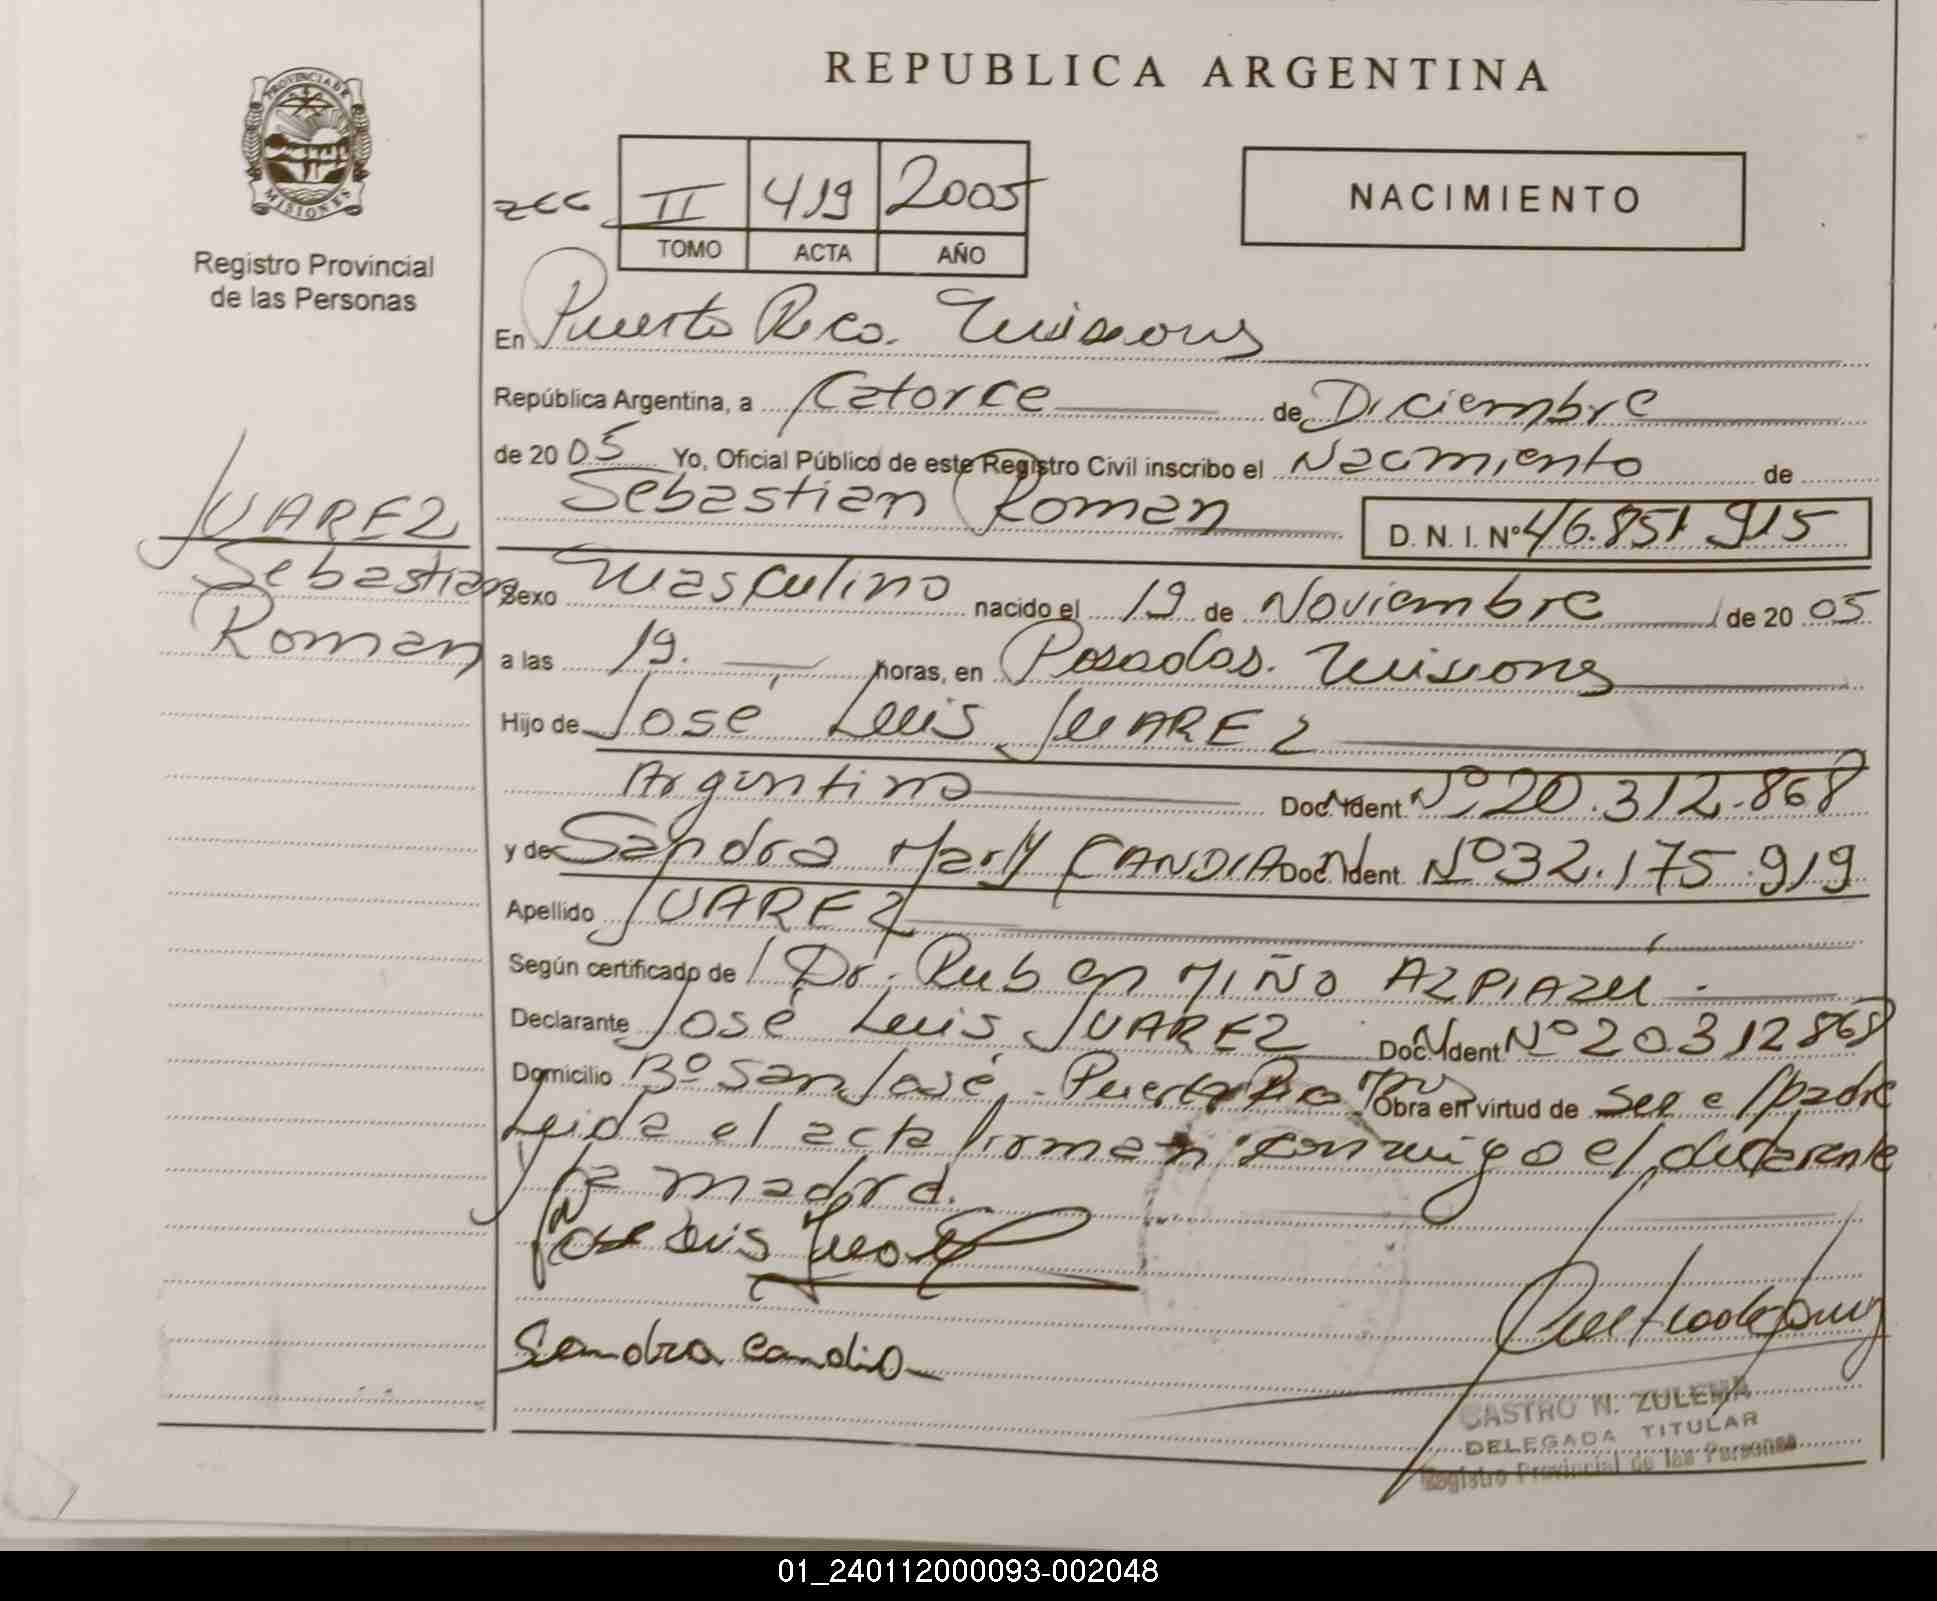 REPUBLICA ARGENTINA
PROVINCIA DE
MISIONES
Registro Provincial
de las Personas
II 419 2005
TOMO ACTA AÑO
NACIMIENTO
En Puerto Rico. Misiones
República Argentina, a Catorce de Diciembre
de 20 05 Yo, Oficial Público de este Registro Civil inscribo el Nacimiento de
Sebastian Roman D. N. I. Nº 46.851.915
JUAREZ
Sebastian
Roman
Sexo Masculino nacido el 19 de Noviembre de 20 05
a las 19. horas, en Posadas. Misiones
Hijo de José Luis JUAREZ
Argentino Doc. Ident. Nº 20.312.868
y de Sandra Mary CANDIA Doc. Ident. Nº 32.175.919
Apellido JUAREZ
Según certificado de Dr. Ruben MIÑO AZPIAZU.
Declarante José Luis JUAREZ Doc. Ident Nº 20312868
Domicilio Bº San José. Puerto Rico Obra en virtud de ser el padre
Leida el acta firman conmigo el declarante
y la madre.
Jose Luis Juarez
Sandra Candia
CASTRO N. ZULEMA
DELEGADA TITULAR
Registro Provincial de las Personas
01_240112000093-002048